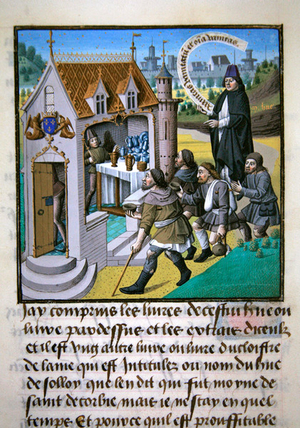 Vanitas vanitatum et oia vanitas
Jay comprins les liures de cestui hue ou
liure par dessus et les extrais diceulx
et il est vng autre liure ou liure du cloistre
de lame qui est intitule ou nom du hue
de folloy que len dit qui fut moyne de
saint de corbie mais ie ne scay en quel
temps. Et pource quil est prouffitable